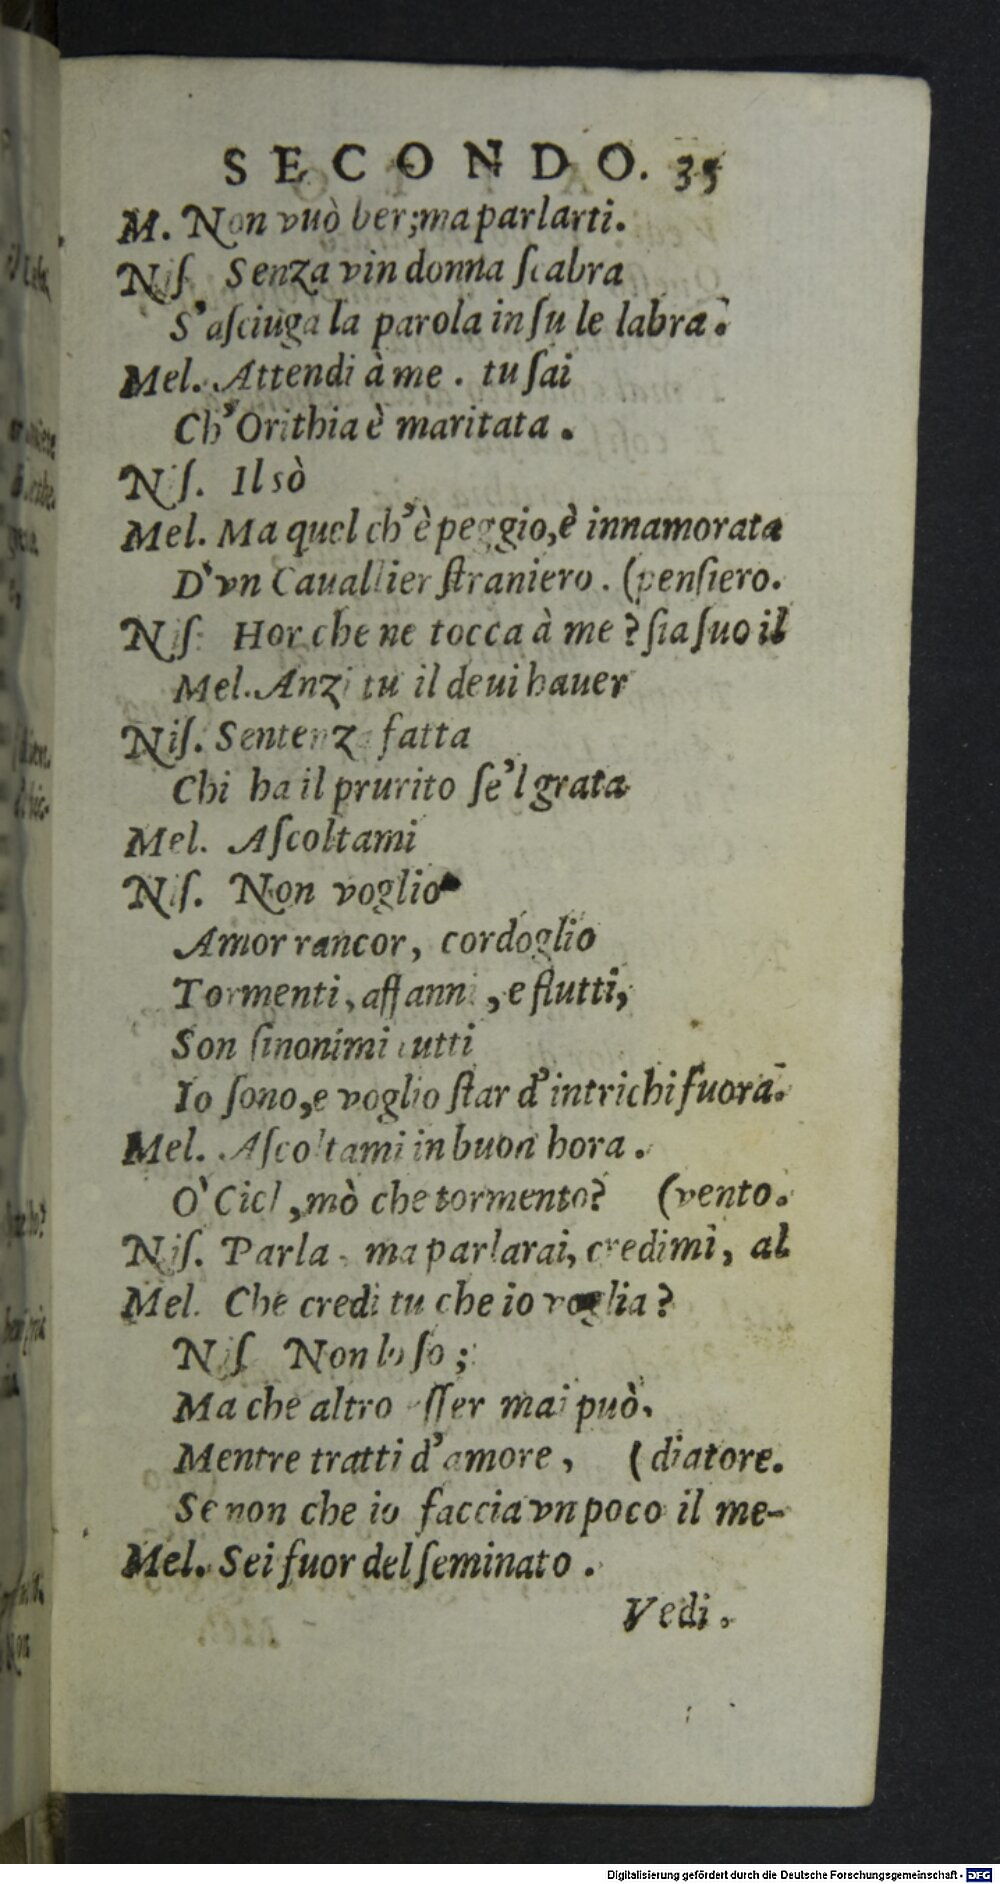 SECONDO. 35
M. Non vuò ber; ma parlarti.
Niſ Senza vin donna ſcabra
S'aſciuga la parola in ſu le labra.
Mel. Attendi à me. tu ſai
Ch'Orithia è maritata.
Niſ. Il sò
Mel. Ma quel ch'è peggio, è innamorata
D'vn Cauallier ſtraniero. (penſiero.
Niſ. Hor che ne tocca à me? ſia ſuo il
Mel. Anzi tu il deui hauer
Niſ. Sentenza fatta
Chi ha il prurito ſe'l grata
Mel. Aſcoltami
Niſ. Non voglio
Amor rancor, cordoglio
Tormenti, affanni, e flutti,
Son ſinonimi tutti
Io ſono, e voglio ſtar d'intrichi fuora.
Mel. Aſcoltami in buon hora.
O' Ciel, mò che tormento? (vento.
Niſ. Parla ma parlarai, credimi, al
Mel. Che credi tu che io voglia?
Niſ Non lo ſo;
Ma che altro eſſer mai può,
Mentre tratti d'amore, (diatore.
Se non che io faccia vn poco il me-
Mel. Sei fuor del ſeminato.
Vedi.
Digitalisierung gefördert durch die Deutsche Forschungsgemeinschaft - DFG